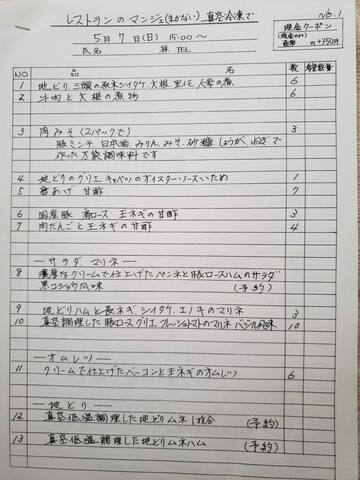 レストランのマンジェ(まかない)真空冷凍で
NO.1
5月7日(日) 15:00～
現金クーポン
氏名 様 TEL
NO 品 名 数 希望数量
1 地どり、三瀬の原木シイタケ、大根、里イモ、人参の煮 6
2 牛肉と大根の煮物 6
3 肉みそ(2パックで) 3
豚ミンチ、日本酒、みりん、みそ、砂糖、しょうが、ねぎで
作った万能調味料です
4 地どりのグリエ キャベツのオイスターソースいため 1
5 唐あげ 甘酢 7
6 国産豚 肩ロース 玉ネギの甘酢 3
7 肉だんごと玉ネギの甘酢 4
―サラダ、マリネ―
8 濃厚なクリームで仕上げたペンネと豚ロースハムのサラダ
黒コショウ風味 (予約)
9 地どりハムと長ネギ、シイタケ、エノキのマリネ 3
10 真空調理した豚ロースグリエ フレッシュトマトのマリネ バジル風味 10
―オムレツ―
11 クリームで仕上げたベーコンと玉ネギのオムレツ 6
―地どり―
12 真空低温調理した地どりムネ1枚分 (予約)
13 真空低温調理した地どりムネハム (予約)